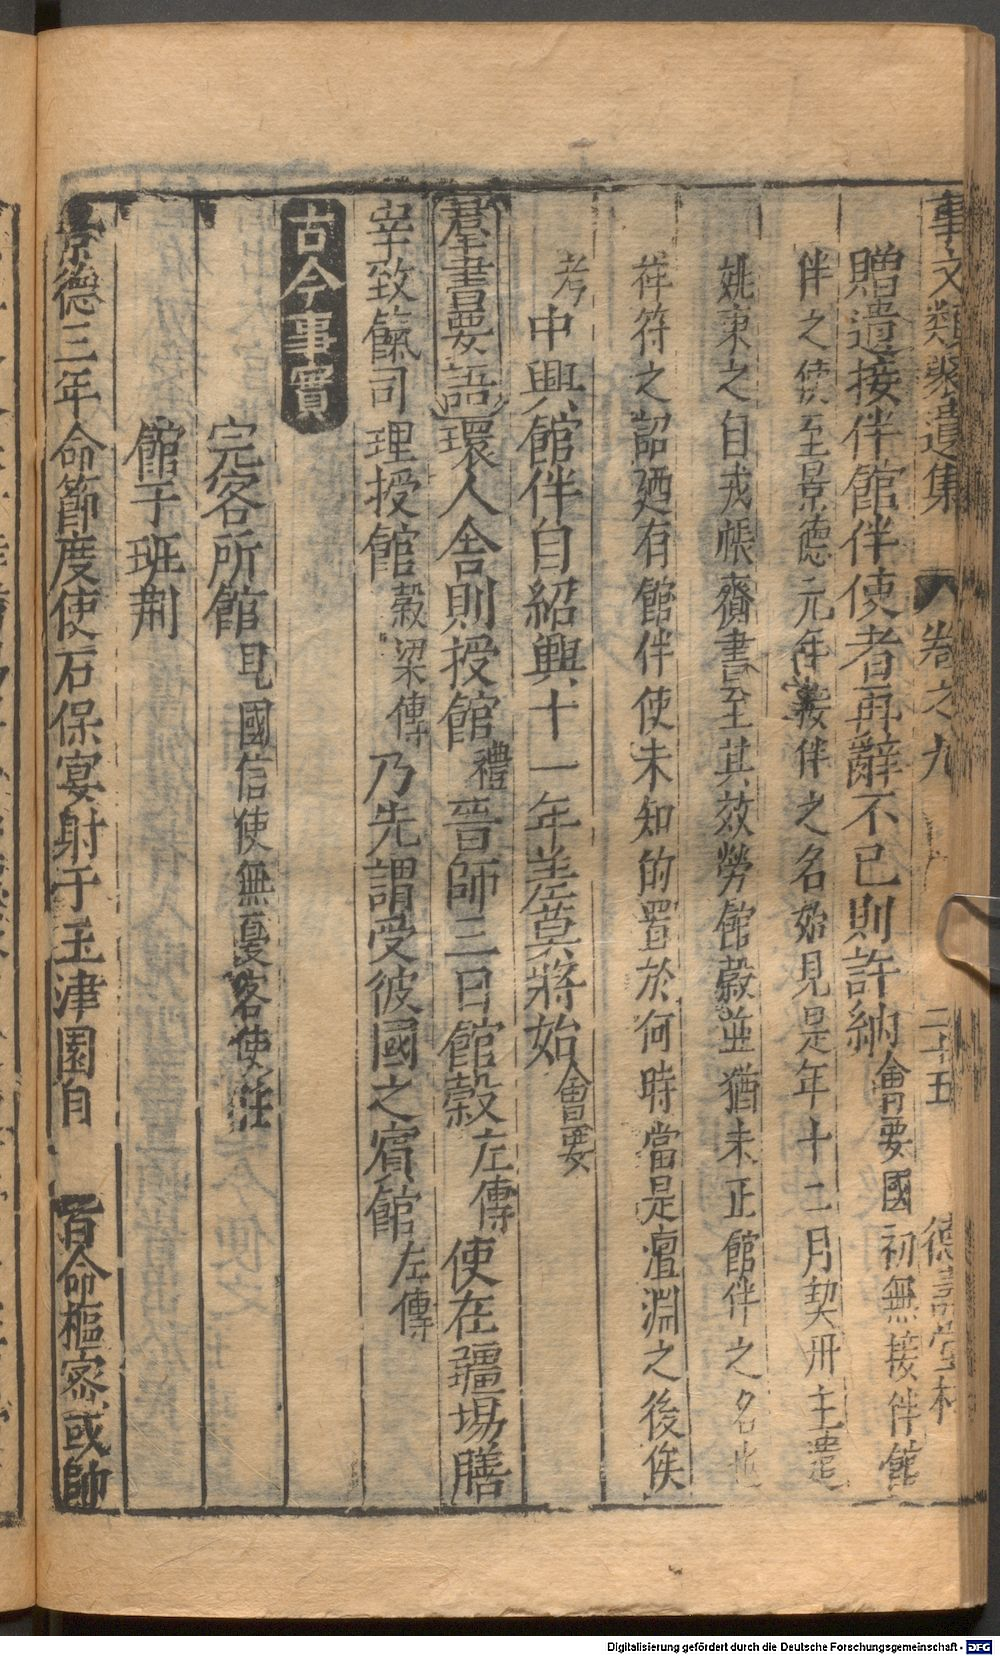 事文類聚遺集 卷之九 二十五 德壽堂梓
贈遺接伴館伴使者再辭不已則許納會要國初無接伴館
伴之使至景德元年接伴之名始見是年十二月契丹主遣
姚柬之自戎帳齎書至其效勞館穀並猶未正館伴之名也
祥符之詔廼有館伴使未知的置於何時當是澶淵之後俟
考
中興館伴自紹興十一年差莫將始會要
羣書要語環人舍則授館禮晉師三日館穀左傳使在疆場膳
宰致餼司理授館穀梁傳乃先謂受彼國之賓館左傳
古今事實
完客所館見國信使無憂客使注
館于班荆
景德三年命節度使石保宴射于玉津園自 百命樞密或帥
Digitalisierung gefördert durch die Deutsche Forschungsgemeinschaft - DFG